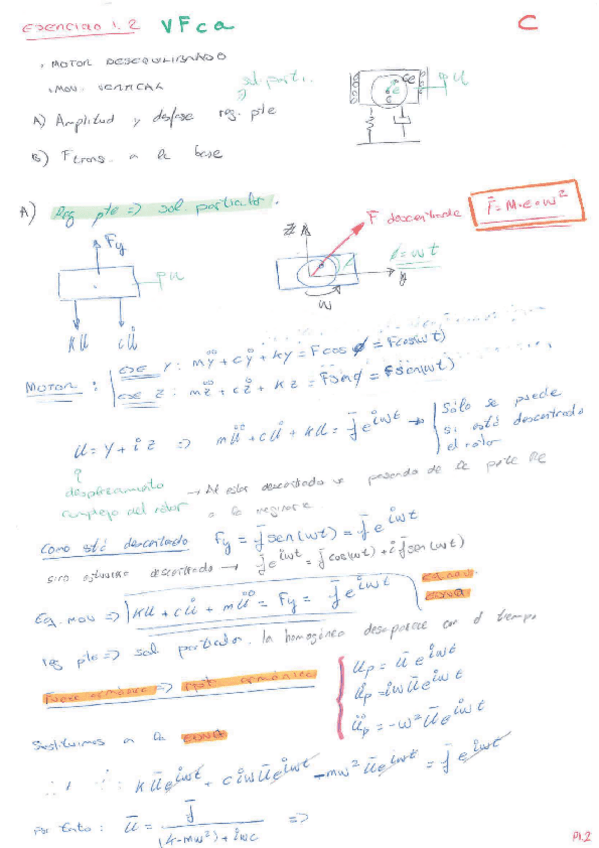 EJERCICIO 1.2 VFca C
. MOTOR DESEQUILIBRADO
. MOV. VERTICAL sol. parti.
A) Amplitud y desfase reg. pte
B) Ftrans. a la base
e u
A) Reg pte => sol. particular.
F descentrada F̄ = M·e·w²
Fy u
z ϕ = wt
y
w
Ku cu̇
MOTOR : eje y: mÿ + cẏ + ky = Fcos ϕ = Fcos(wt)
eje z: mz̈ + cż + kz = Fsenϕ = Fsen(wt)
u = y + i z => mü + cu̇ + ku = f̄ e^{iwt} → Sólo se puede
si está descentrado
el rotor
desplazamiento → Al estar descentrado va pasando de la parte Re
complejo del rotor a la imaginaria.
Como está descentrado Fy = f̄ sen(wt) = f̄ e^{iwt}
si no estuviera descentrado → f̄ e^{iwt} = f̄ cos(wt) + i f̄ sen(wt)
Eq. mov => ku + cu̇ + mü = Fy = f̄ e^{iwt} Eq. mov
reg pte => sol particular. la homogénea desaparece con el tiempo
Fuerza armónica => rpt armónica
u_p = ū e^{iwt}
u̇_p = iwū e^{iwt}
ü_p = -w² ū e^{iwt}
Sustituimos a la
∴ kū e^{iwt} + ciwū e^{iwt} - mw² ū e^{iwt} = f̄ e^{iwt}
Por tanto : ū = f̄ / ((k-mw²) + iwc) =>
P1.2